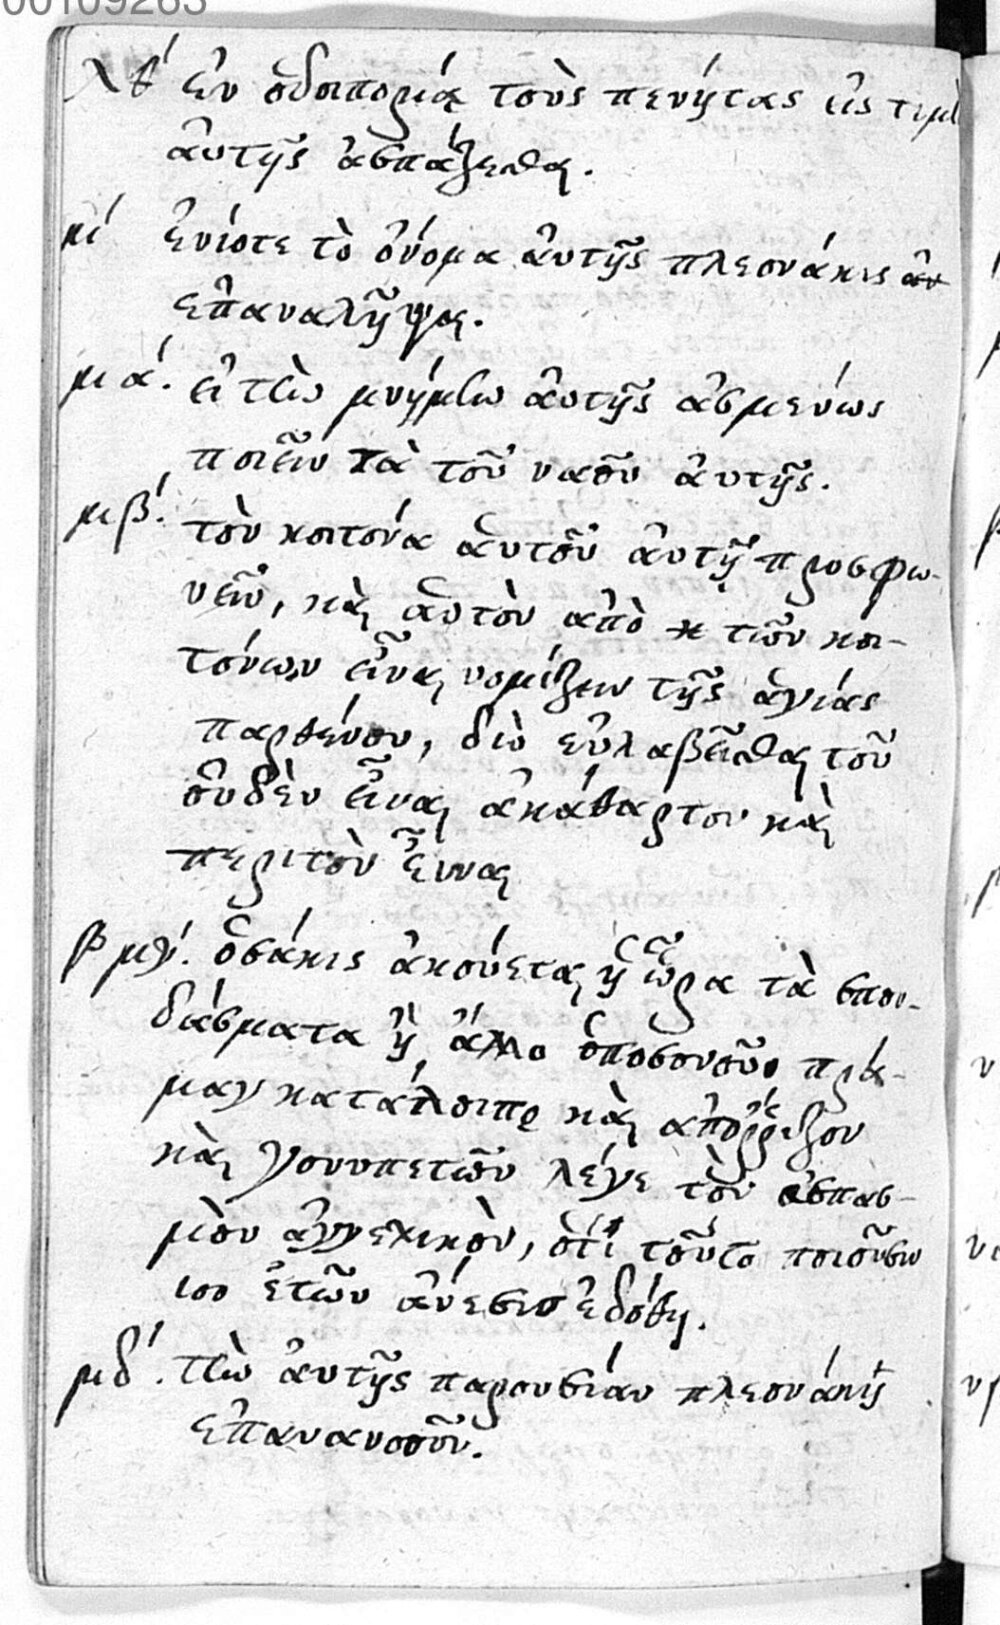 00109263
λθ´ ἐν ὁδοιπορίᾳ τοὺς πενήτας εἰς τιμὴ
ἀυτῆς ἀσπάζεσθαι.
μ´ ἐνίοτε τὸ ὄνομα ἀυτῆς πλεονάκις
ἐπαναλῆψαι.
μα´. εἰ τὴν μνήμην ἀυτῆς ἀσμενώς
ποιεῖν τὰ τοῦ ναοῦ ἀυτῆς.
μβ´. τὸν κοιτόνα ἁυτοῦ ἀυτῇ προσφω-
νεῖν, καὶ ἁυτὸν ἀπὸ τῶν κοι-
τόνων εἶναι νομίζειν τῆς ἁγίας
παρθένου, διὸ εὐλαβεῖσθαι τοῦ
οὐδὲν εἶναι ἀκάθαρτον καὶ
περιτὸν εἶναι
β μγ´. ὁσάκις ἀκούεται ἡ ὥρα τὰ σπου-
δάσματα ἢ ἄλλο ὁποσονοῦν πρᾶ-
μαν κατάλοιπε καὶ ἀπόῤῥιξον
καὶ γονυπετῶν λέγε τὸν ἀσπασ-
μὸν ἀγγελικὸν, ὅτι τοῦτο ποιοῦσιν
ιοο ἐτῶν ἄνεσισ ἐδόθη.
μδ´. τὴν ἀυτῆς παρουσίαν πλεονάκις
ἐπανανοοῦν.